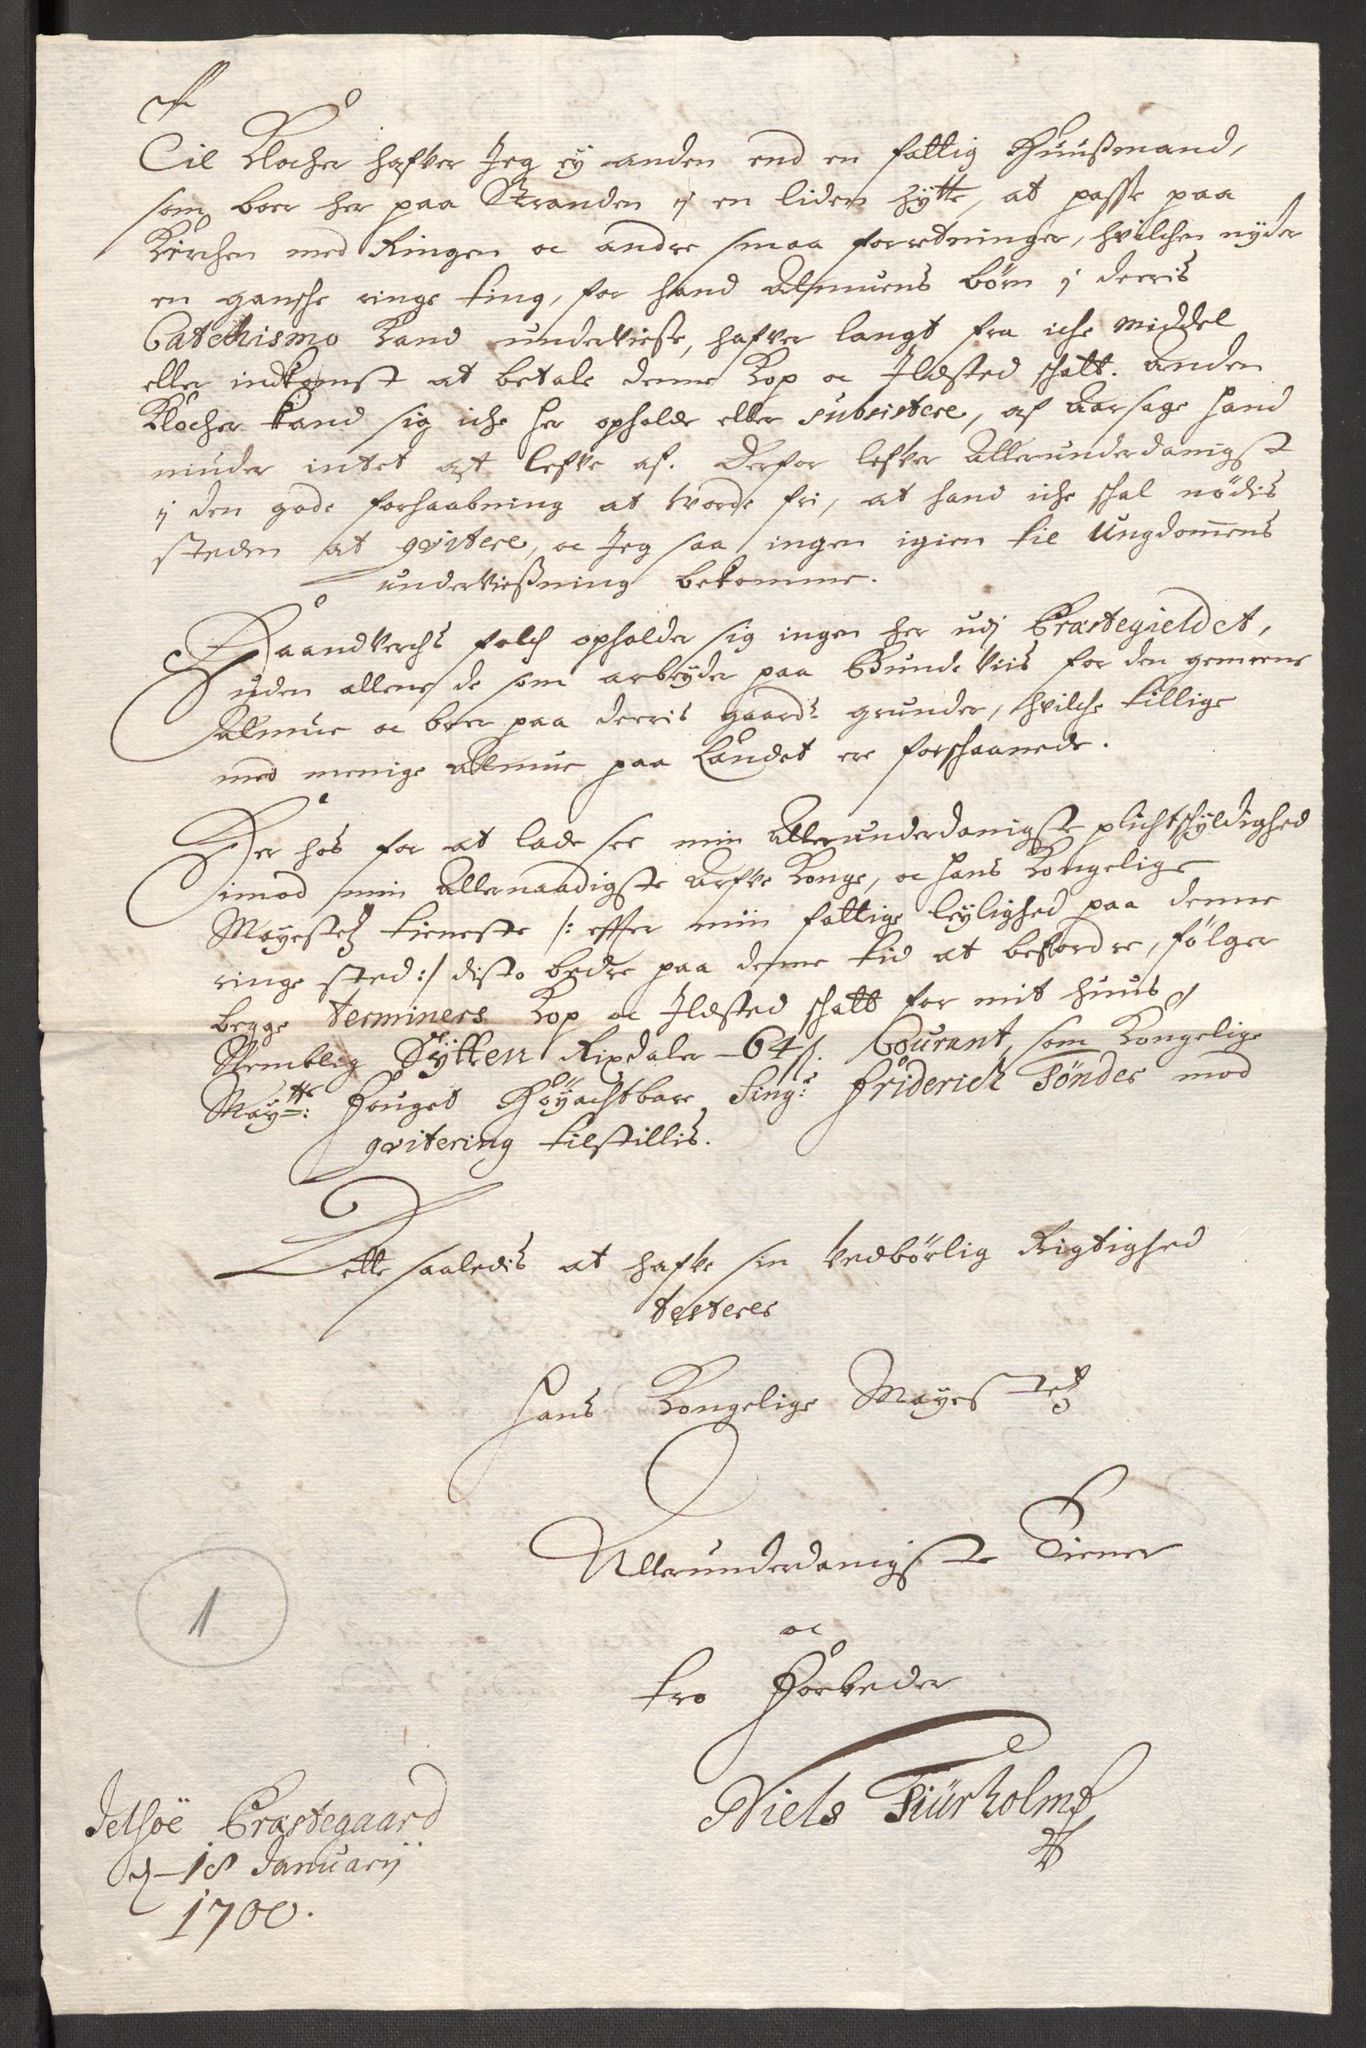 Til Klocher hafver Jeg ey anden end en fattig Huusmand,
som boer her paa Stranden ij en liden hytte, at passe paa
Kirchen med Ringen oc andre smaa forretninger, hvilchen nyder
en gansche ringe ting, for hand Almuens børn i deeris
Catechismo Kand underviese, hafver langt fra iche middel
eller indkomst at betale denne Kop oc Ildsted schatt. anden
Klocher kand sig iche her opholde eller subsistere, af Aarsage hand
niuder intet at lefve af. Derfor lefver Allerunderdanigst
ij den gode forhaabning at vorde fri, at hand iche schal nødis
steden at qvitere, oc Jeg saa ingen igien til Ungdommens
undervisning bekomme.
Haandverchs folch opholder sig ingen her udj Præstegieldet,
uden allene de som arbeyder paa Bunde Viis for den gemeene
Almue oc boer paa deeris gaards grunder, hvilche tillige
med menige Almue paa Landet ere forschaanede.
Der hos for at lade see min Allerunderdanigste plichtschyldighed
imod min Allernaadigste Arfve Konge, oc Hans Kongelige
Mayestetz tieneste /: effter min fattige leylighed paa denne
ringe sted :/ disto bedre paa denne tid at befordre, følger
begge terminers Kop oc Ildsted schatt for mit huus
Nemblig Sytten Rixdaler 64 s. Courant, som Kongelige
Maytts: Fouget Høyachtbare Sing: Friderich Tønder mod
qvitering tilstillis.
Dette saaledis at hafve sin vedbørlig Rigtighed
testeres
Hans Kongelige Mayestetz
Allerunderdanigste Tiener
oc
tro Forbeder
Niels Fiurholm
1
Jelsøe Præstegaard
d 18 Januarij
1700.